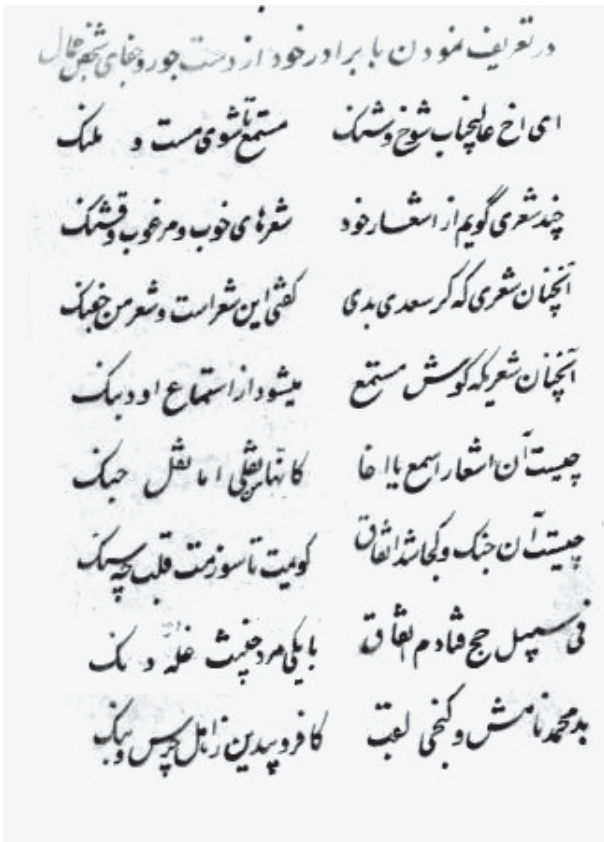 در تعریف نمودن با برادر خود از دست جور و جفای شخص
ای اخ عالیجناب شوخ و شنک مستمع شوی مست و ملنک
چند شعری گویم از اشعار خود شعرهای خوب و مرغوب و قشنک
آنچنان شعری که کر سعدی بدی کفتی این شعر است و شعر من جفنک
آنچنان شعریکه کوش مستمع میشود از استماع او دبنک
چیست آن اشعار اسمع یا اخا کانها نقلی اما نقل جنک
چیست آن جنک و کجا شد اتفاق کویمت تا سوزمت قلب چه سنک
فی سبیل حج فتادم اتفاق با یکی مرد خبیث دنک
بد محمد نامش و لقب کافر و بیدین ز اهل چرس و بنک